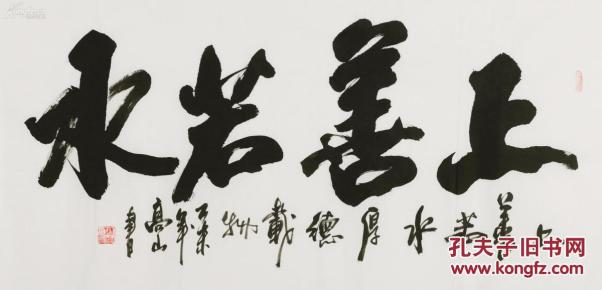 上善若水
上善若水厚德載物
高山
孔夫子旧书网
www.kongfz.com